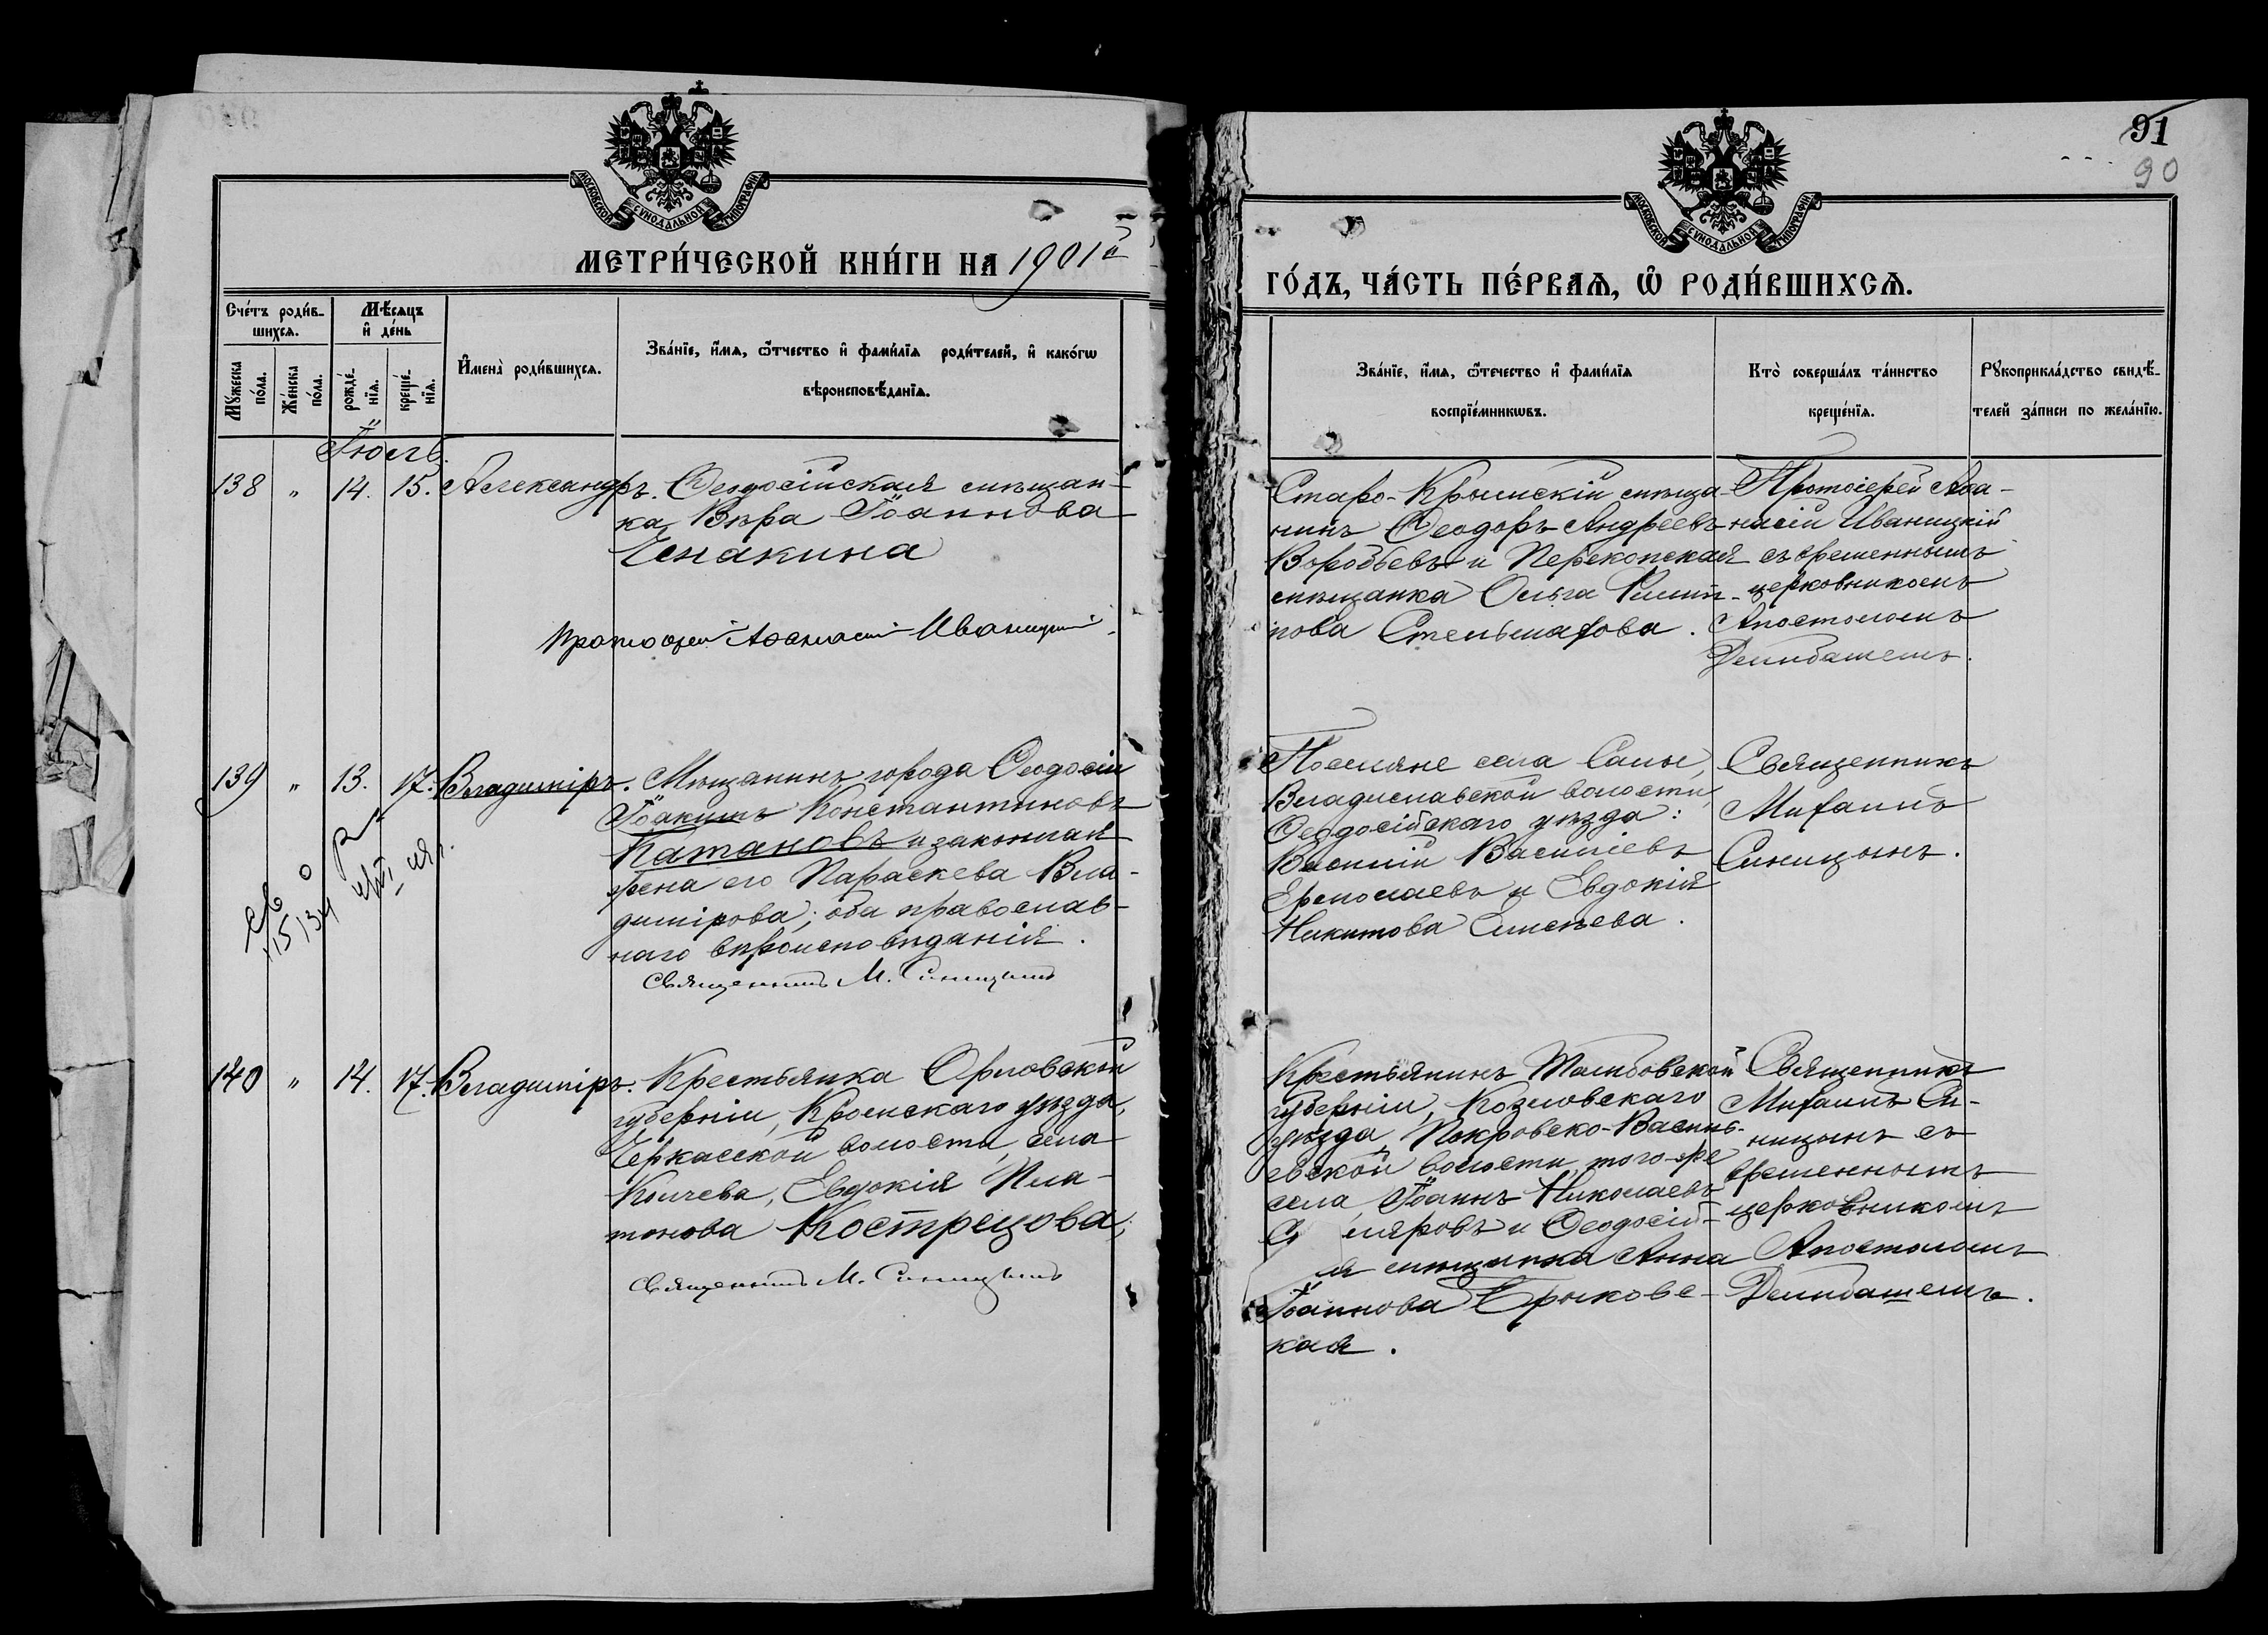 91
90
МОСКОВСКОЙ СѴНОДАЛЬНОЙ ТИПОГРАФІИ
МОСКОВСКОЙ СѴНОДАЛЬНОЙ ТИПОГРАФІИ
МЕТРИ́ЧЕСКОЙ КНИ́ГИ НА 1901й
ГО́ДЪ, ЧА́СТЬ ПЕ́РВАѦ, Ѡ҆ РОДИ́ВШИХСѦ.
Сче́тъ роди́в-
шихсѧ.
Мѣ́сѧцъ
и҆ де́нь
Мꙋ́жеска
по́ла.
Же́нска
по́ла.
рожде́-
нїѧ.
креще́-
нїѧ.
И҆мена̀ роди́вшихсѧ.
Зва́нїе, и҆́мѧ, ѻ҆́тчество и҆ фами́лїѧ роди́телей, и҆ како́гѡ
вѣроисповѣ́данїѧ.
Зва́нїе, и҆́мѧ, ѻ҆те́чество и҆ фами́лїѧ
воспрїе́мникѡвъ.
Кто̀ соверша́лъ та́инство
креще́нїѧ.
Рꙋкоприкла́дство свидѣ́-
телей за́писи по жела́нїю.
Іюль.
138 " 14. 15. Александръ. Ѳеодосійская мѣщан-
ка Вѣра Іоаннова
Чепакина
Протоіерей Аѳанасій Иваницкій
Старо-Крымскій мѣща-
нинъ Ѳеодоръ Андреевъ
Воробьевъ и Перекопская
мѣщанка Ольга Филип-
пова Стельмахова.
Протоіерей Аѳа-
насій Иваницкій
съ временнымъ
церковникомъ
Апостоломъ
Делибашемъ.
139 " 13. 17. Владиміръ. Мѣщанинъ города Ѳеодосіи
Іоакимъ Константиновъ
Катановъ и законная
жена его Параскева Вла-
димірова; оба православ-
наго вѣроисповѣданія.
Священникъ М. Синицынъ
Поселяне села Салы,
Владиславской волости,
Ѳеодосійскаго уѣзда:
Василій Васильевъ
Ермолаевъ и Евдокія
Никитова Алмѣева.
Священникъ
Михаилъ
Синицынъ.
140 " 14. 17. Владиміръ. Крестьянка Орловской
губерніи, Кромскаго уѣзда,
Черкасской волости, села
Колчева, Евдокія Пла-
тонова Кострецова;
Священникъ М. Синицынъ
Крестьянинъ Тамбовской
губерніи, Козловскаго
уѣзда, Покровско-Василь-
евской волости, того-же
села, Іоаннъ Николаевъ
и Ѳеодосій-
я мѣщанка Анна
Іоаннова Брыковс-
кая.
Священникъ
Михаилъ Си-
ницынъ съ
временнымъ
церковникомъ
Апостоломъ
Делибашемъ.